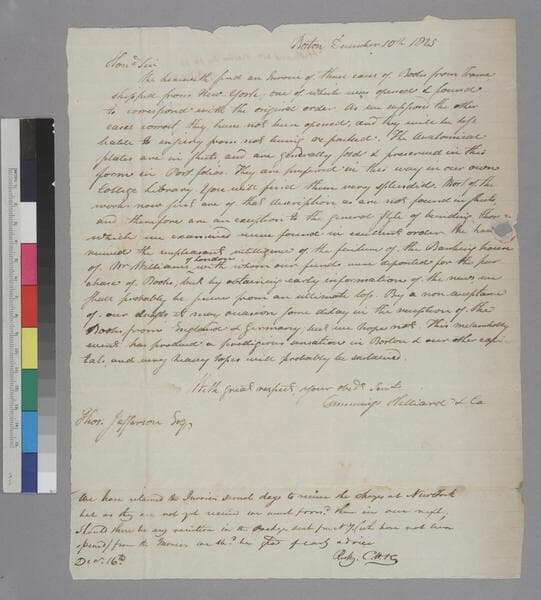 Boston December 10th 1825
Hond Sir
We herewith find an Invoice of three cases of Books from France
shipped from New York, one of which was opened & found
to correspond with the original order. As we suppose the other
cases correct, they have not been opened, and they will be less
liable to injury from not being repacked. The Anatomical
plates are in parts, and are generally sold & preserved in this
form in Port folios. They are preferred in this way in our own
College Library. You will find them very splendid. Most of the
works now sent are of that description as are not found in sheets,
and therefore are an exception to the general style of binding. Those
which we examined were found in excellent order. We have
received the unpleasant intelligence of the failure of the Banking house
of Mr Williams of London with whom our funds were deposited for the pur
chase of Books, but by obtaining early information of the news we
shall probably be secure from an ultimate loss. By a non acceptance
of our drafts it may occasion some delay in the reception of the
Books from England & Germany but we hope not. This melancholy
event has produced a prodigious sensation in Boston & our other capi
tals, and very heavy losses will probably be sustained.
With great respect, your obdt Servts
Cummings Hilliard & Co
Thos. Jefferson Esq,
We have retained the Invoices several days to receive the charges at New York
but as they are not yet received we must forwd them in our next,
Should there be any variation in the Packages sent from which have not been
opened from the Invoices we shd be glad of early advice
Decr. 16th
Respy. C.H&Co